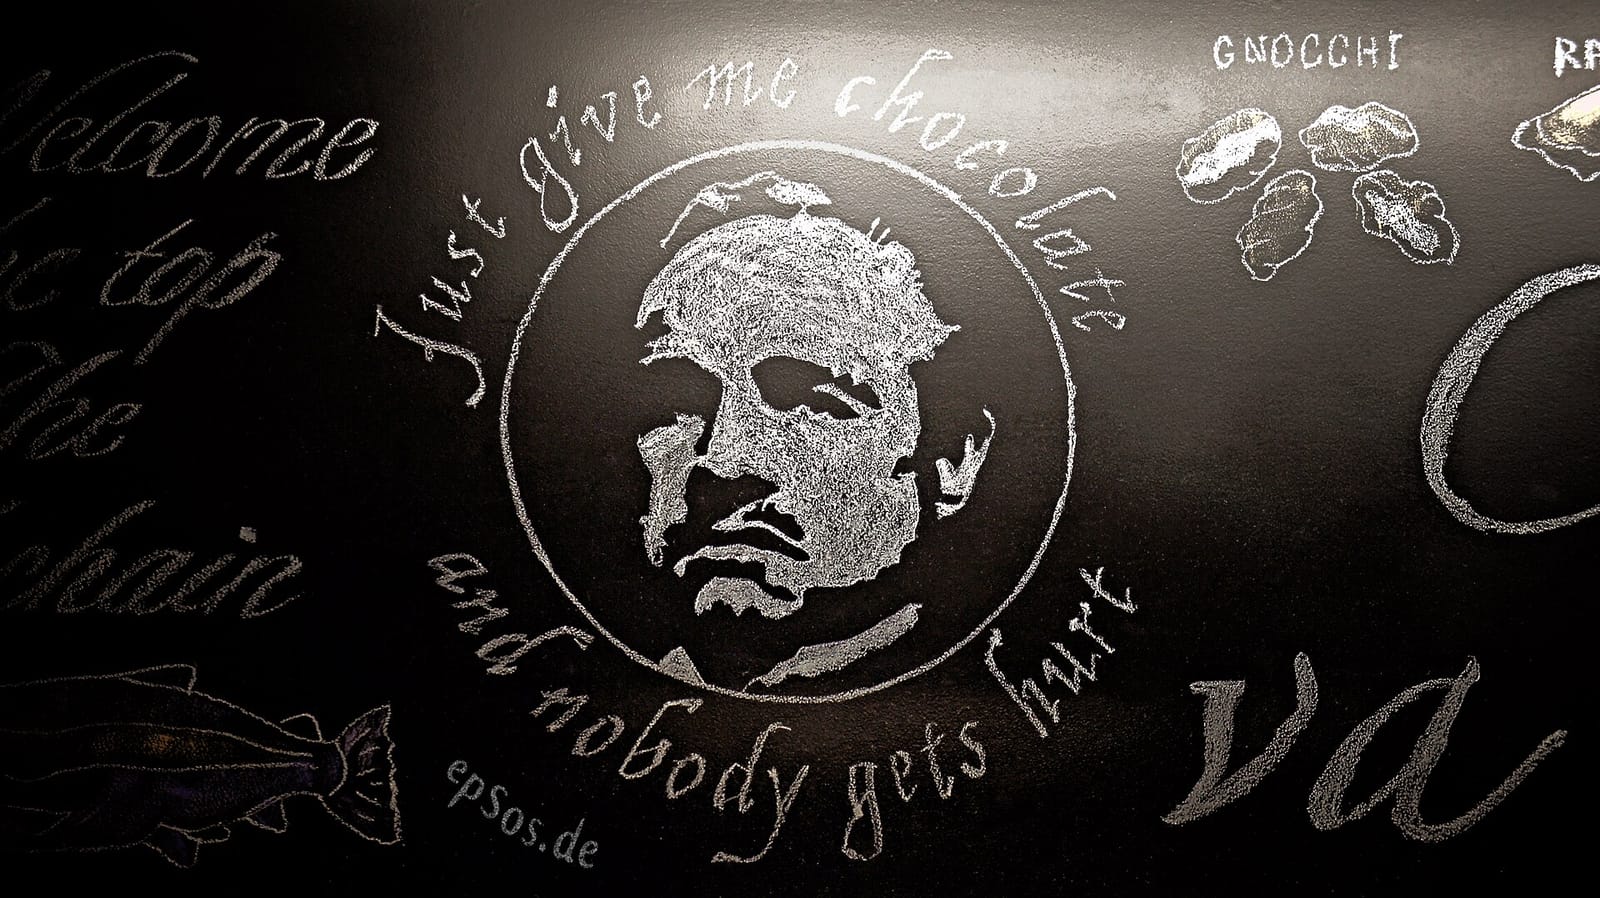 Welcome
top
the
chain
Just give me chocolate
and nobody gets hurt
epsos.de
GNOCCHI
va